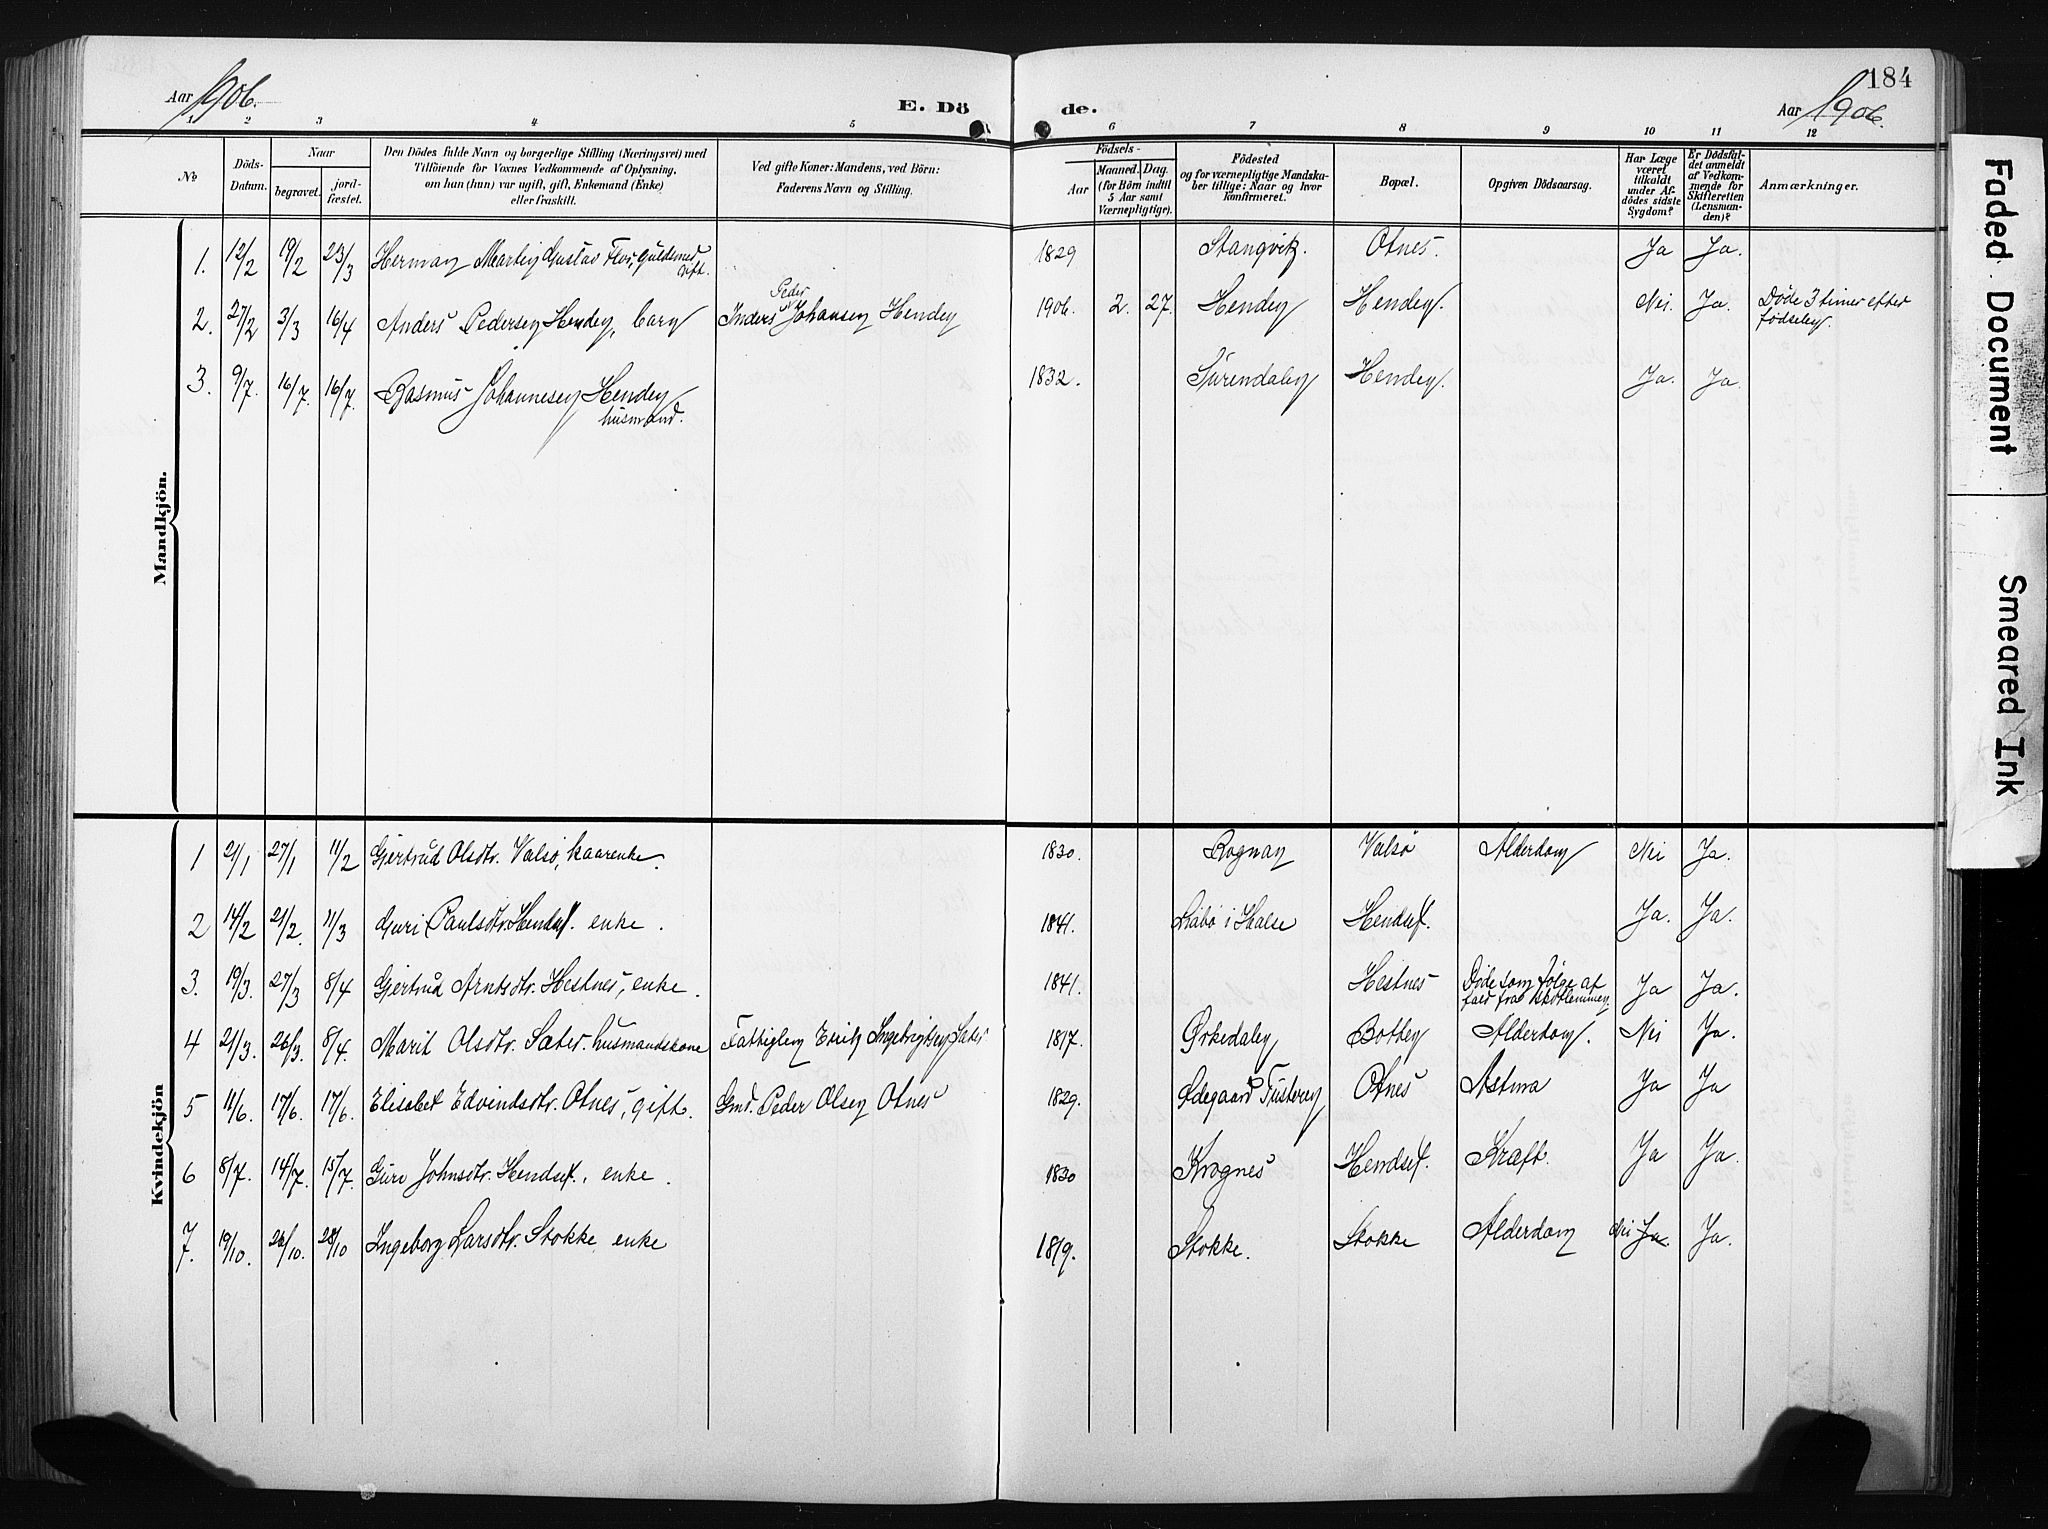 184
Aar 1906.
E. Dö
de.
Aar 1906.
1 2 3 4 5 6 7 8 9 10 11 12
№
Döds-
Datum.
Naar
begravet.
jord-
fæstet.
Den Dödes fulde Navn og borgerlige Stilling (Næringsvei) med
Tilföiende for Voxnes Vedkommende af Oplysning,
om han (hun) var ugift, gift, Enkemand (Enke)
eller fraskilt.
Ved gifte Koner: Mandens, ved Börn:
Faderens Navn og Stilling.
Födsels-
Aar
Maaned. Dag
(for Börn indtil
5 Aar samt
Værnepligtige).
Födested
og for værnepligtige Mandska-
ber tillige: Naar og hvor
konfirmeret.
Bopæl.
Opgiven Dödsaarsag.
Har Læge
været
tilkaldt
under Af-
dödes sidste
Sygdom?
Er Dödsfal-
det anmeldt
af Vedkom-
mende for
Skifteretten
(Lensman-
den)?
Anmærkninger.
Mandkjön.
1. 12/2 19/2 23/3 Herman Martin Gustav Flor, Guldsmed 1829 Stangvik. Otnes. Ja Ja.
gift.
Peder
2. 27/2 3/3 16/4 Anders Pedersen Henden, barn Anders Johansen Henden 1906. 2. 27. Henden Henden. Nei. Ja. Døde 3 timer efter
fødselen.
3. 9/7. 16/7. 16/7. Rasmus Johannesen Henden 1832. Surendalen Henden. Ja. Ja.
husmand.
Kvindekjön
1 21/1 27/1 11/2 Gjertrud Olsdtr. Valsø, kaarenke. 1830. Rognan Valsø Alderdom Nei Ja.
2 14/2 21/2. 11/3 Guri Paulsdtr. Hendset. enke. 1841. Liabø i Halse Hendset. Ja. Ja.
3. 19/3. 27/3 8/4 Gjertrud Arntsdtr. Hestnes, enke. 1841. Hestnes Døde som følge af
fald fra Ja Ja.
4 21/3. 26/3. 8/4. Marit Olsdtr. Sæter. husmandskone Fattiglem Erik Ingebrigtsen Sæter 1817. Ørkedalen Botten Alderdom. Nei Ja.
5 11/6. 17/6. 17/6. Elisabet Edvindsdtr. Otnes, gift. Gmd. Peder Olsen Otnes 1829. Ødegaard Tusteren Otnes Astma Ja Ja
6 8/7. 14/7. 15/7. Guri Johnsdtr. Hendset. enke. 1830 Krognes Hendset. Kræft. Ja Ja.
7. 19/10. 26/10. 28/10 Ingeborg Larsdtr. Stokke enke 1819. Stokke. Stokke Alderdom Nei Ja Ja.
Faded Document
Smeared Ink